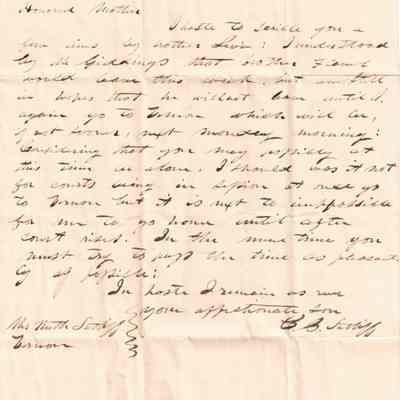 Honored Mother
I haste to scrible you a
few lines by brother Levi: I understood
by Mr Giddings that brother
would leave this week, but am still
in hopes that he will not leave until I
again go to Vernon which will be,
if not sooner, next monday morning:
Considering that you may possibly at
this time be alone, I should was it not
for courts being in session at once go
to Vernon but it is next to impossible
for me to go home until after
court rises. In the mean time you
must try to pass the time as pleasant
ly as possible:
In haste I remain as ever
your affectionate Son
Mrs Ruth Sutliff
Vernon
C. B. Sutliff